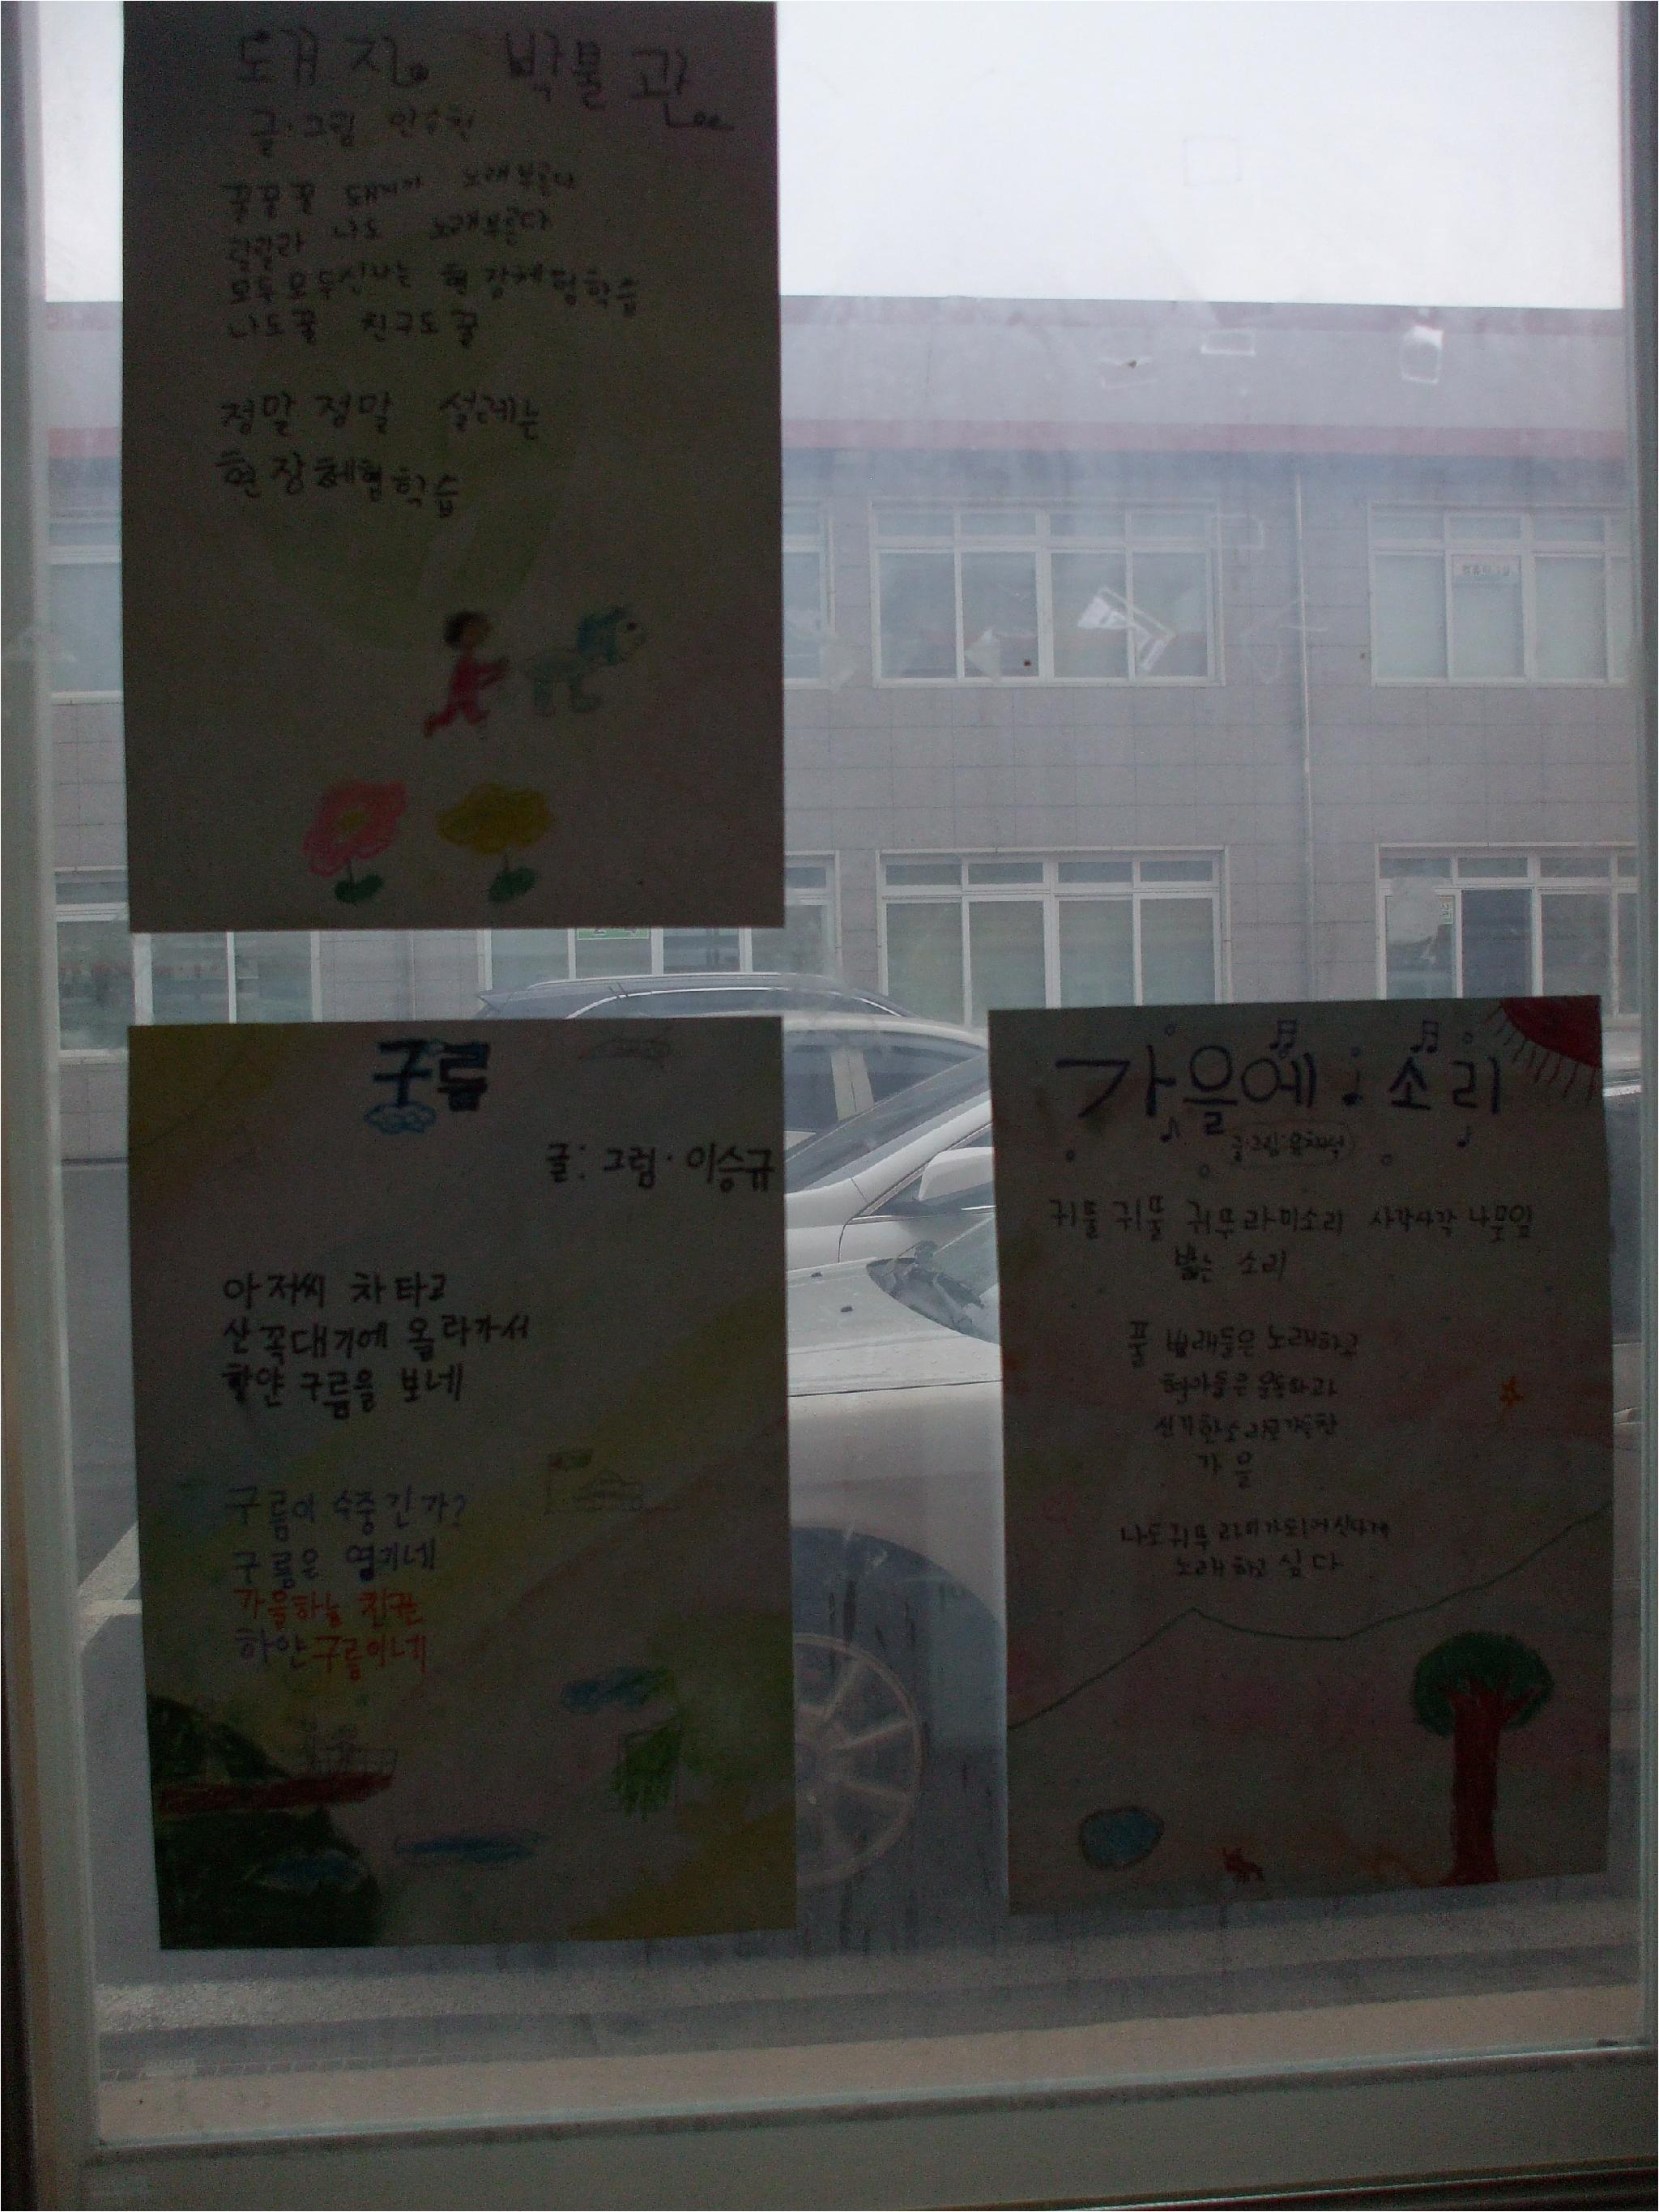 돼지 박물관
글·그림 안수현
꿀꿀꿀 돼지가 노래부른다
랄랄라 나도 노래부른다
모두모두신나는 현장체험학습
나도꿀 친구도꿀
정말정말 설레는
현장체험학습
구름
글: 그림·이승규
아저씨 차타고
산꼭대기에 올라가서
하얀 구름을 보네
구름이 수중긴가?
구름은 열기네
가을하늘 친구는
하얀구름이네
가을에 소리
글·그림:
귀뚤귀뚤 귀뚜라미소리 사각사각 나뭇잎
밟는 소리
풀 벌래들은 노래하고
신기한소리로가득한
가을
나도귀뚜라미가되어신나게
노래하고 싶다